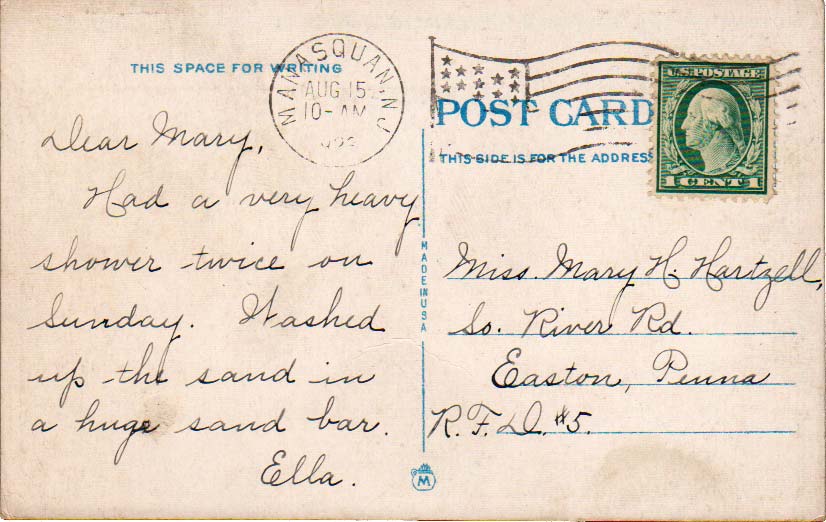 THIS SPACE FOR WRITING
MANASQUAN, N J
AUG 15
10-AM
POST CARD
THIS SIDE IS FOR THE ADDRESS
U.S. POSTAGE
1 CENT 1
Dear Mary,
Had a very heavy
shower twice on
Sunday. Washed
up the sand in
a huge sand bar.
Ella.
MADE IN USA
M
Miss. Mary H. Hartzell,
So. River Rd.
Easton, Penna
R.F.D. #5.